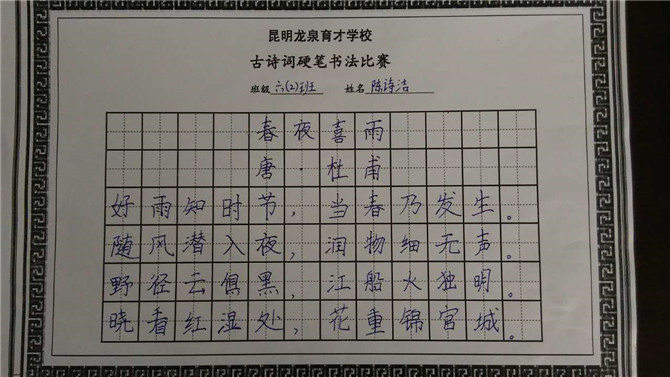 昆明龙泉育才学校
古诗词硬笔书法比赛
班级 六(2)班 姓名 陈诗洁
春夜喜雨
唐·杜甫
好雨知时节,当春乃发生。
随风潜入夜,润物细无声。
野径云俱黑,江船火独明。
晓看红湿处,花重锦宫城。